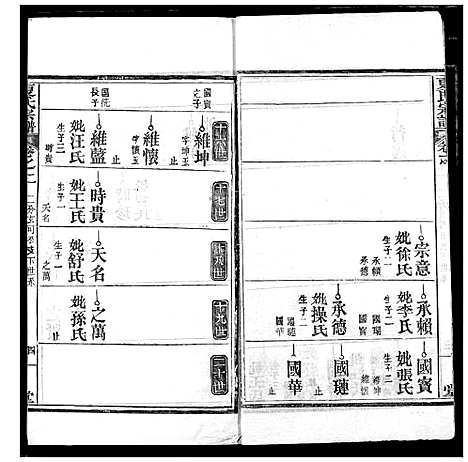 宗意
妣徐氏
生子二
承賴
承德
承賴
妣李氏
生子二
國璉
國寶
妣張氏
生子二
維坤
維懷
承德
妣操氏
生子二
國璉
國華
國璉
止
國華
止
國寶之子
維坤
字坤玉
止
維懷
字懷玉
止
國玩長子
維藍
妣汪氏
生子三
時貴
時貴
妣王氏
生子一
天名
天名
妣舒氏
生子一
之萬
之萬
妣孫氏
止
十六世
十七世
十八世
十九世
二十世
夏氏宗譜
四
堂